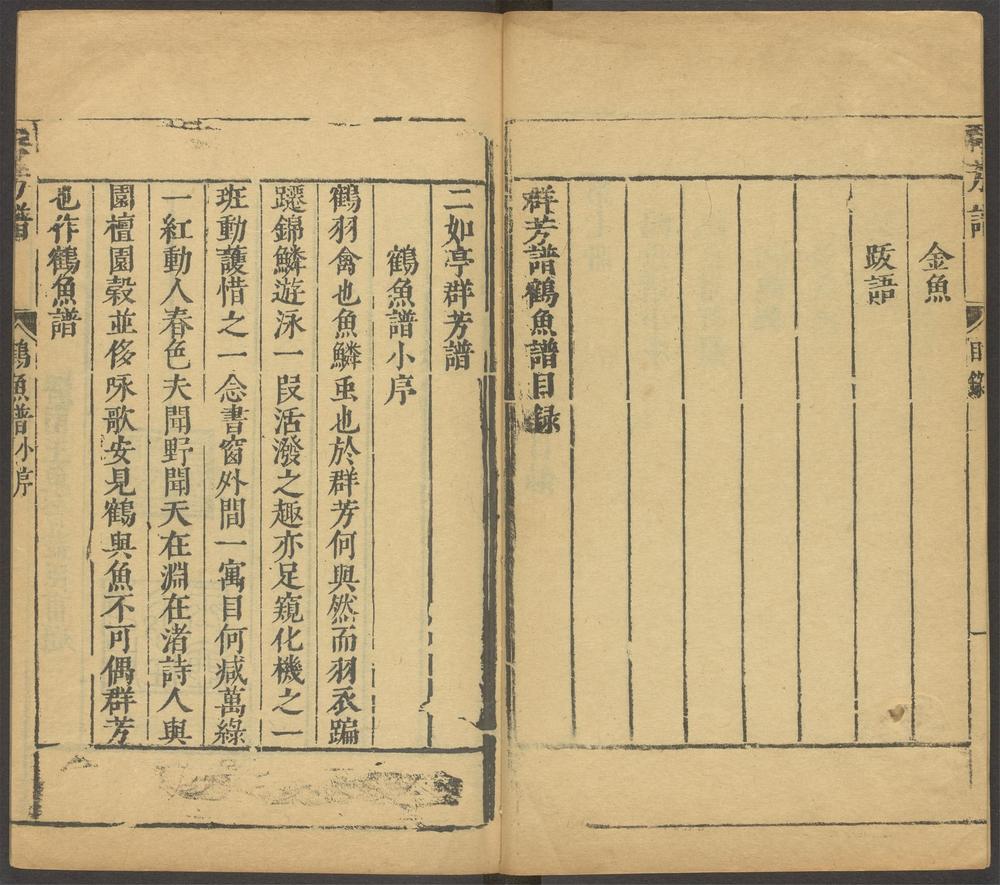 金魚
跋語
群芳譜鶴魚譜目録
目錄
一
二如亭群芳譜
鶴魚譜小序
鶴羽禽也魚鱗虫也於群芳何與然而羽衣蹁
躚錦鱗遊泳一叚活潑之趣亦足窺化機之一
班動䕶惜之一念書窗外間一寓目何减萬綠
一紅動人春色夫聞野聞天在淵在渚詩人與
園檀園榖並侈咏歌安見鶴與魚不可偶群芳
也作鶴魚譜
鶴魚譜小序